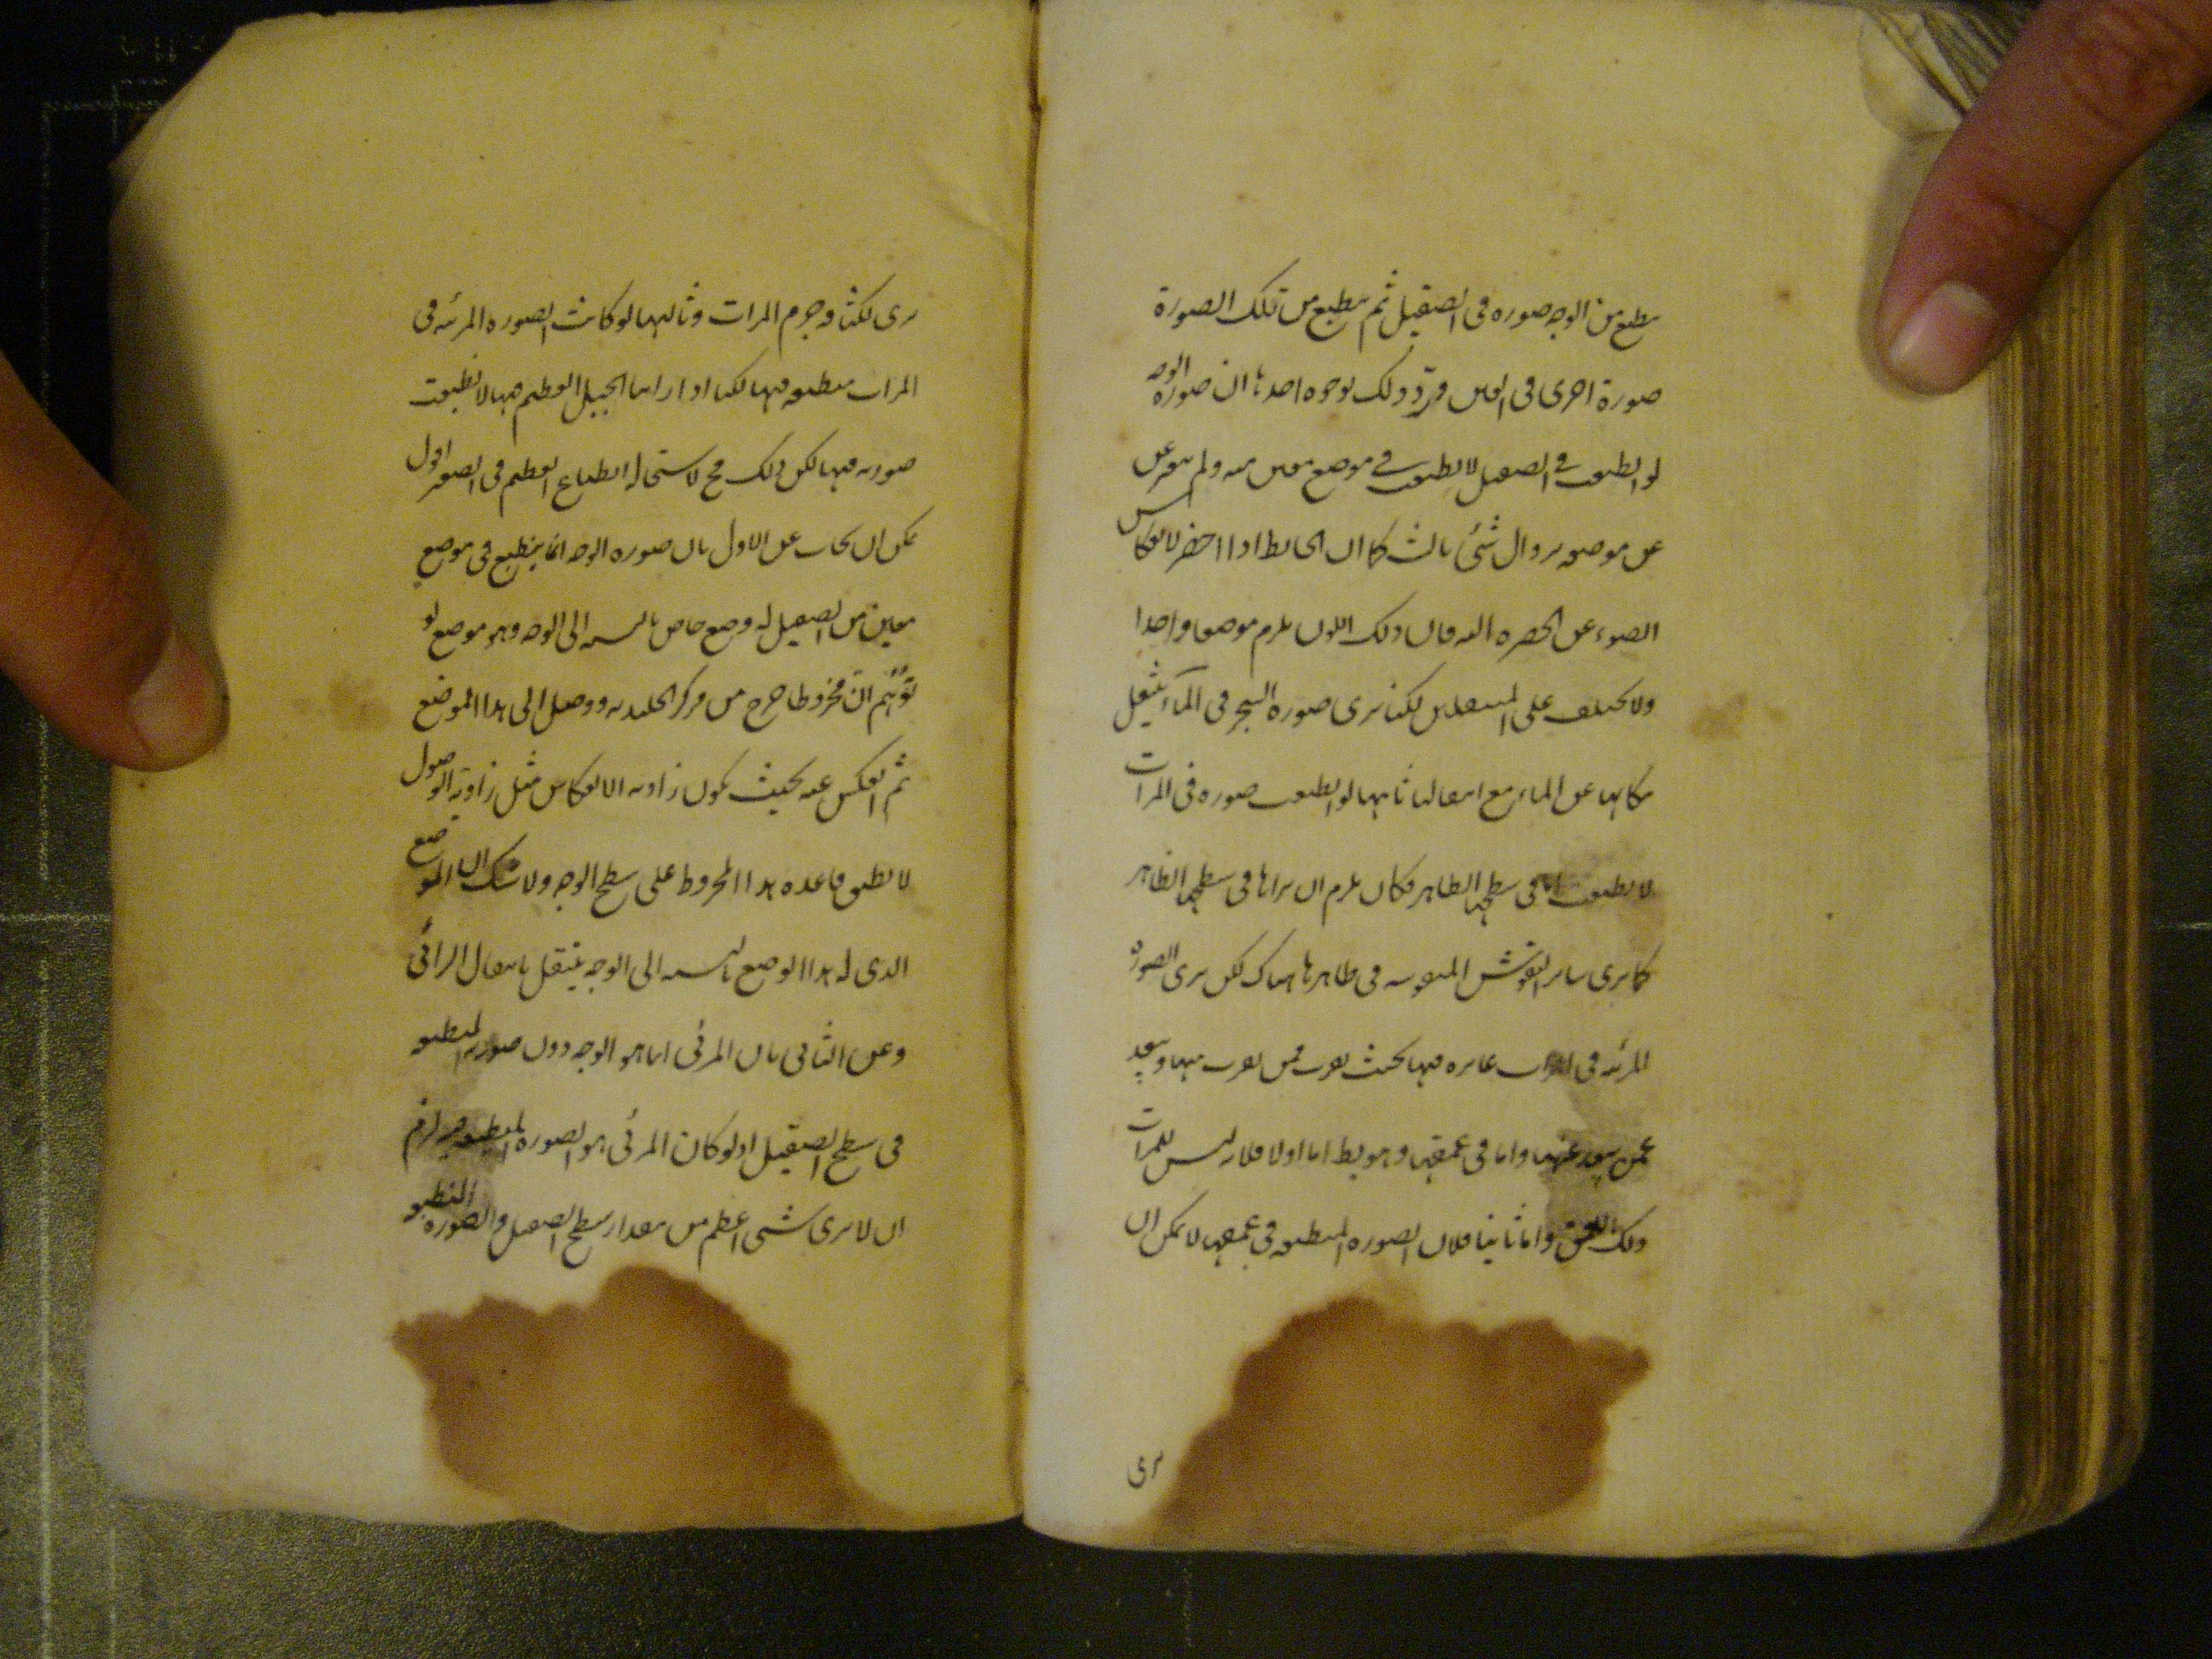 ينطبع من الوجه صورة في الصقيل ثم ينطبع من تلك الصورة
صورة اخرى في العين ورد وذلك لوجوه احدها ان صورة الوجه
لو انطبعت في الصقيل لانطبعت في موضع معين منه ولم يتغير عن
عن موضعه بزوال شئ ثالث كما ان الحايط اذا اخضر لانعكاس
الضوء عن الخضرة اليه فان ذلك اللون يلزم موضعا واحدا
ولا يختلف على المنتقلين لكنا نرى صورة الشجر في المآء ينتقل
مكانها عن الماء مع انتقالنا ثانيها لو انطبعت صورة في المرات
لانطبعت اما في سطحها الظاهر فكان يلزم ان نراها في سطحها الظاهر
كما نرى ساير النقوش المنقوشه في ظاهرها هناك لكن نرى الصورة
المرئيه في المرات غايره فيها بحيث تقرب ممن يقرب منها وتبعد
عمن يبعد عنها واما في عمقها وهو بط اما اولا فلانه ليس للمرات
ذلك العمق واما ثانيا فلان الصوره المنطبعه في عمقها لا يمكن ان
يرى
يرى لكثافه جرم المرات وثالثها لو كانت الصوره المرئيه في
المرات منطبعه فيها لكنا اذا راينا الجبل العظيم فيها لانطبعت
صورته فيها لكن ذلك مح لاستحاله انطباع العظيم في الصغير اقول
يمكن ان يجاب عن الاول بان صوره الوجه انما ينطبع في موضع
معين من الصقيل له وضع خاص بالنسبه الى الوجه وهو موضع لو
توهم ان مخروطا خرج من مركز الجليديه ووصل الى هذا الموضع
ثم انعكس عنه بحيث يكون زاويه الانعكاس مثل زاوية الوصول
لانطبق قاعده هذا المخروط على سطح الوجه ولا شك ان الموضع
الذى له هذا الوضع بالنسبه الى الوجه ينتقل بانتقال الرائي
وعن الثاني بان المرئي انما هو الوجه دون صورته المنطبعه
في سطح الصقيل اذ لو كان المرئي هو الصوره المنطبعه فيه لزم
ان لا يرى شئ اعظم من مقدار سطح الصقيل والصوره المنطبعه